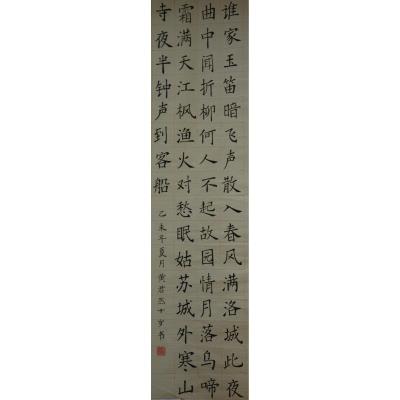 谁家玉笛暗飞声散入春风满洛城此夜
曲中闻折柳何人不起故园情月落乌啼
霜满天江枫渔火对愁眠姑苏城外寒山
寺夜半钟声到客船
乙未年夏月黄君